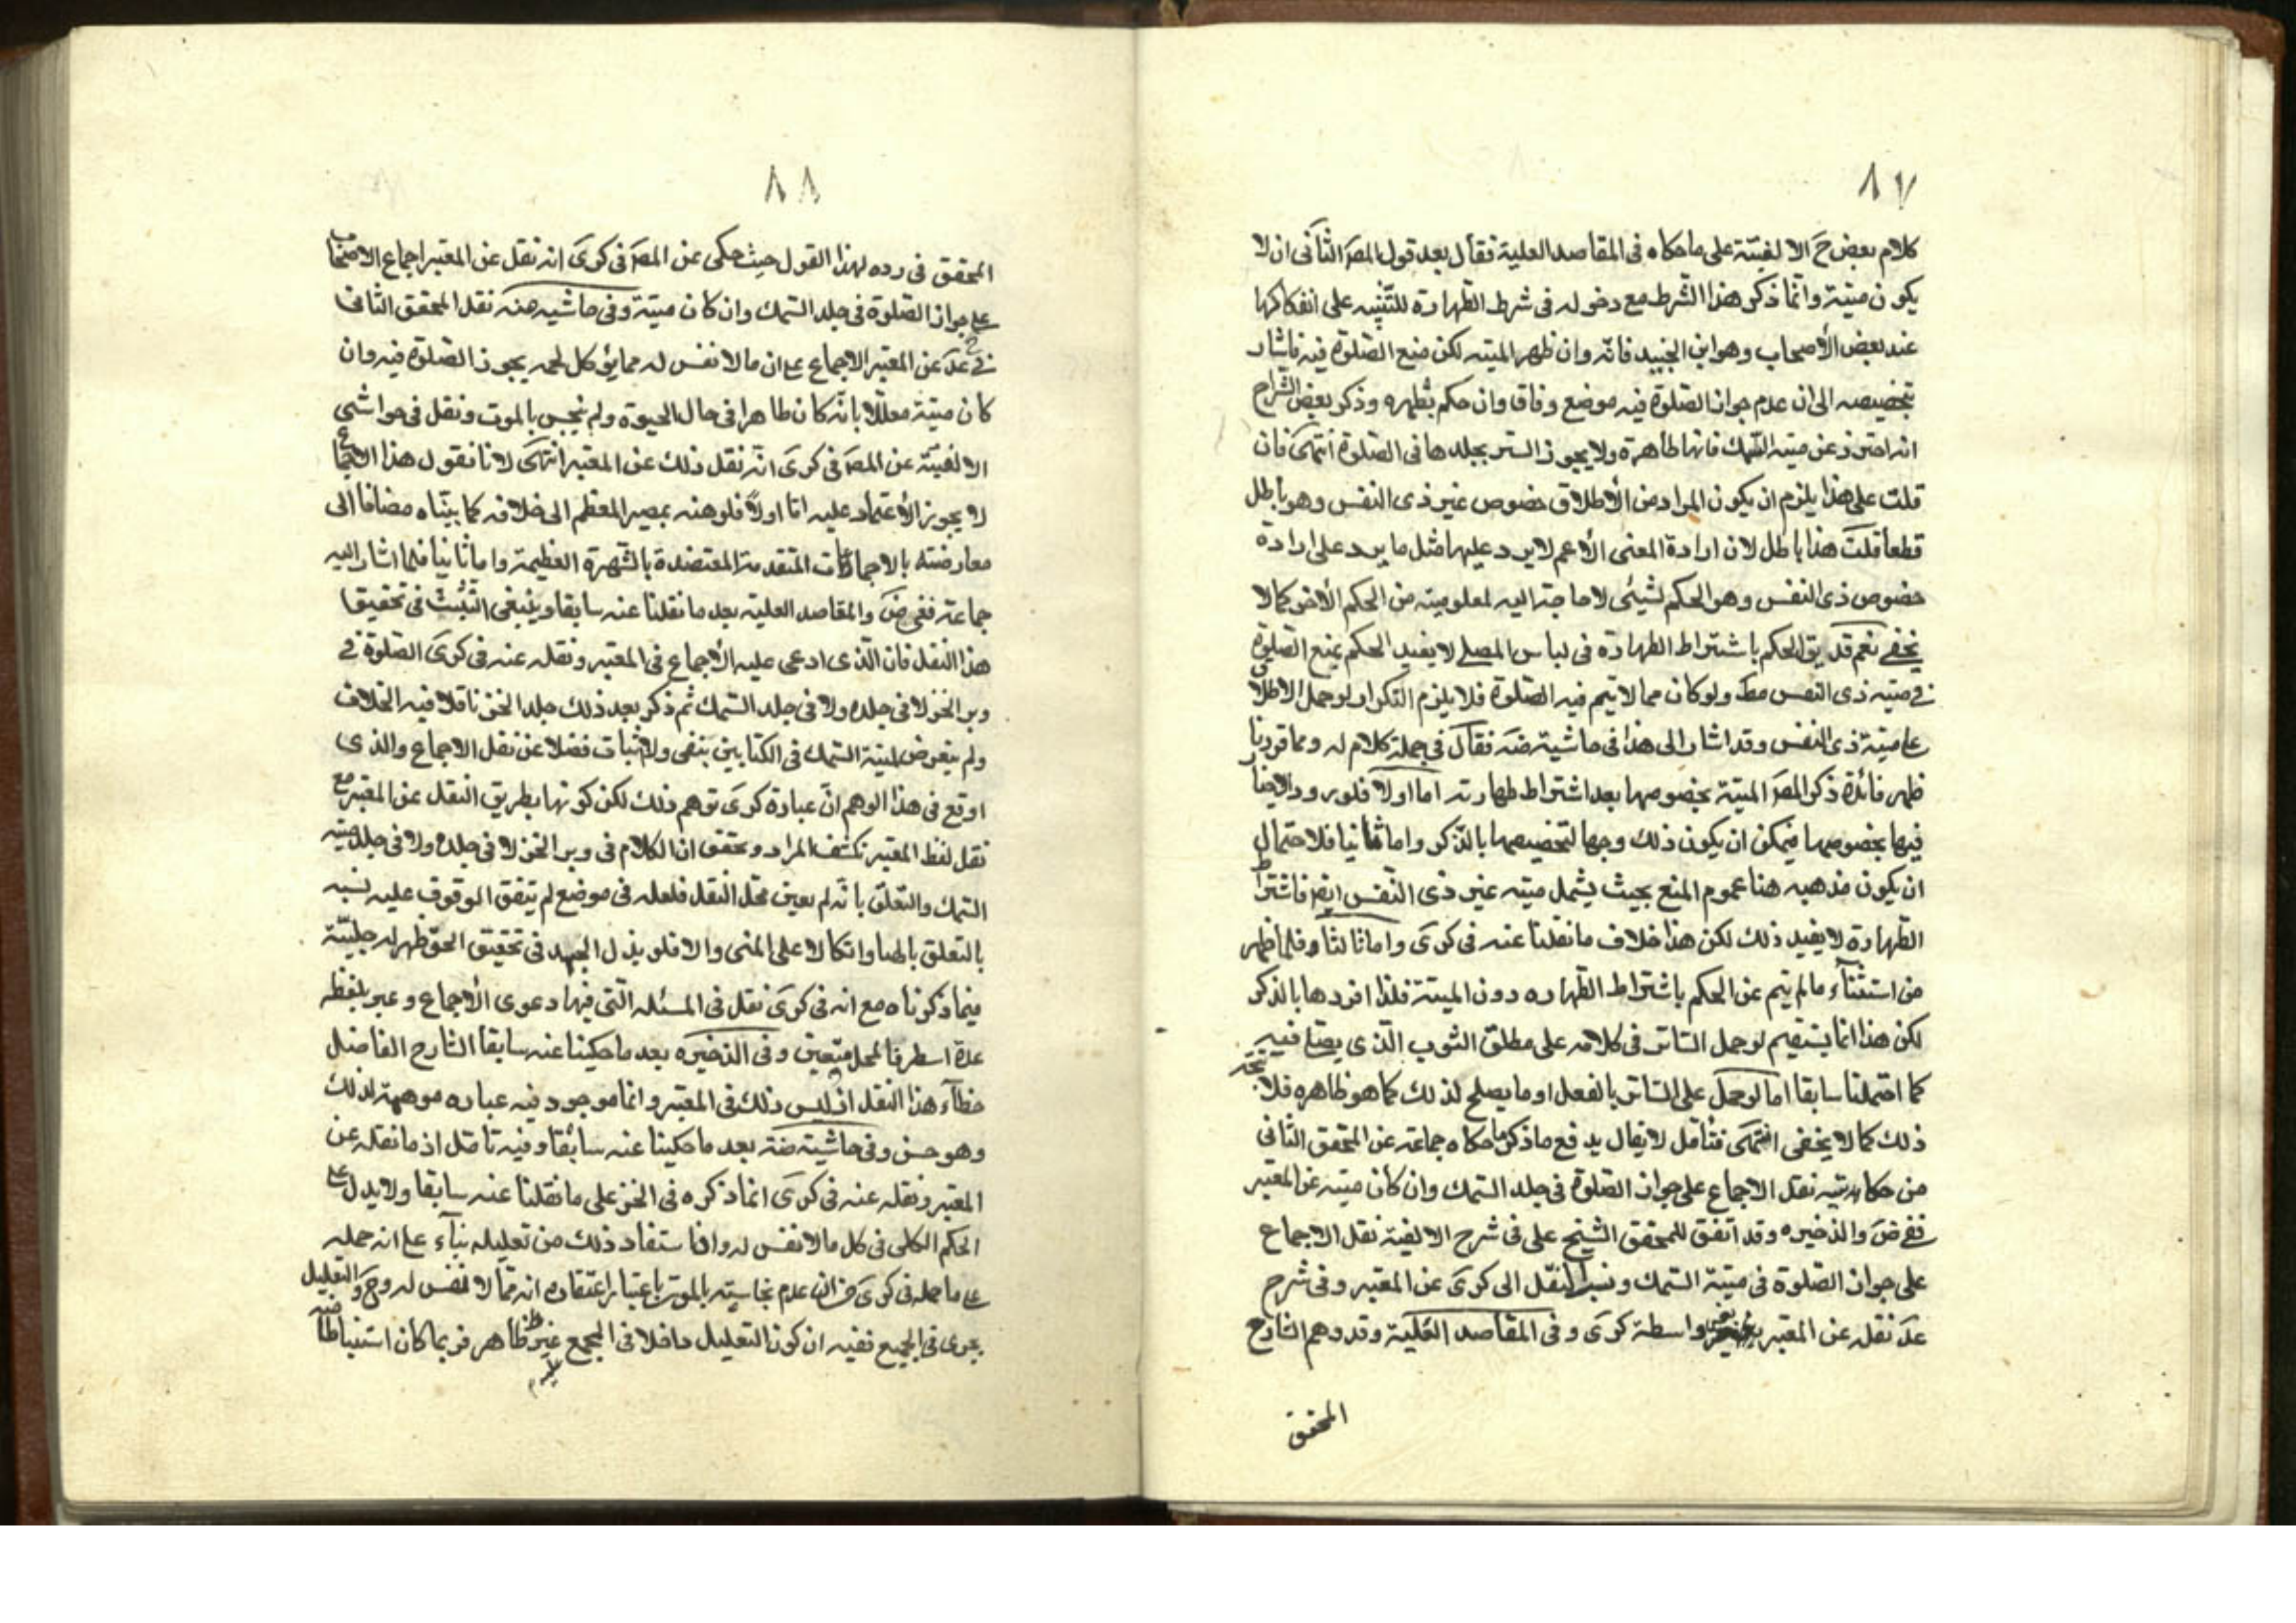 ٨٧
كلام بعض ح الالفيّة على ما حكاه فى المقاصد العلية فقال بعد قول المصَ الثانى ان لا
يكون ميتة وانما ذكر هذا الشرط مع دخوله فى شرط الطهارة للتنبيه على انفكاكها
عند بعض الأصحاب وهو ابن الجنيد فانّه وان طهر الميته لكن منع الصّلوة فيه فاشار
بتخصيصه الى ان عدم جواز الصّلوة فيه موضع وفاق وان حكم بطهره وذكر بعض الشراح
انه احترز عن ميته السّمك فانها طاهرة ولا يجوز الستر بجلدها فى الصّلوة انتهى فان
قلت على هذا يلزم ان يكون المراد من الأطلاق خصوص غير ذى النفس وهو باطل
قطعا قلت هذا باطل لان ارادة المعنى الأعم لا يرد عليها مثل ما يرد على ارادة
خصوص ذى النفس وهو الحكم لشيئى لا حاجة اليه لمعلوميته من الحكم الأخر كما لا
يخفى نعم قد يق الحكم باشتراط الطهارة فى لباس المصلى لا يفيد الحكم بمنع الصّلوة
فى ميته ذى النفس مطَ ولو كان مما لا يتم فيه الصّلوة فلا يلزم التكرار لو حمل الاطلاق
على ميتة ذى النفس وقد اشار الى هذا فى حاشية ضَه فقال فى جملة كلام له ومما قررنا
ظهر فائدة ذكر المصَ الميتة بخصوصها بعد اشتراط طهارته اما اولا فلورود
فيها بخصوصها فيمكن ان يكون ذلك وجها لتخصيصها بالذكر واما ثانيا فلاحتمال
ان يكون مذهبه هنا عموم المنع بحيث يشمل ميته غير ذى النّفس ايضَ فاشتراط
الطّهارة لا يفيد ذلك لكن هذا خلاف ما نقلنا عنه فى كرى واما ثالثا فلما ظهر
من استثنآء ما لم يتم عن الحكم باشتراط الطّهاره دون الميتة فلذا افردها بالذكر
لكن هذا انما يستقيم لو حمل الساتر فى كلامه على مطلق الثوب الّذى يصلى فيه
كما احتملنا سابقا اما لو حمل على الساتر بالفعل او ما يصلح لذلك كما هو ظاهره فلا يتجه
ذلك كما لا يخفى انتهى فتامل لا يقال يدفع ما ذكر ما حكاه جماعة عن المحقق الثانى
من حكايته نقل الاجماع على جواز الصّلوة فى جلد السّمك وان كان ميته عن المعتبر
ففى ضَ والذخيره وقد اتفق للمحقق الشيخ على فى شرح الالفية نقل الاجماع
على جواز الصّلوة فى ميتة السّمك ونسب النقل الى كرى عن المعتبر وفى شرح
عدَ نقله عن المعتبر بغير واسطة كرى وفى المقاصد العلية وقد وهم الشارح
المحقق
٨٨
المحقق فى رده لهذا القول حيث حكى عن المصَ فى كرى انه نقل عن المعتبر اجماع الاصحاب
على جواز الصّلوة فى جلد السّمك وان كان ميتة وفى حاشيه ضه نقل المحقق الثانى
فى ح عدَ عن المعتبر الاجماع على ان ما لا نفس له مما يؤكل لحمه يجوز الصّلوة فيه وان
كان ميتة معلّلا بانّه كان طاهرا فى حال الحيوة ولم ينجس بالموت ونقل فى حواشى
الالفيّة عن المصَ فى كرى انّه نقل ذلك عن المعتبر انتهى لانا نقول هذا الاجماع
لا يجوز الأعتماد عليه امّا اولاً فلوهنه بمصير المعظم الى خلافه كما بيناه مضافا الى
معارضته بالاجماعات المتقدمة المعتضدة بالشّهرة العظيمة واما ثانيا فلما اشار اليه
جماعة ففى ضَ والمقاصد العلية بعد ما نقلنا عنه سابقا وينبغى التّثبّت فى تحقيق
هذا النّقل فان الّذى ادعى عليه الأجماع فى المعتبر ونقله عنه فى كرى الصّلوة فى
وبر الخز لا فى جلده ولا فى جلد السّمك ثم ذكر بعد ذلك جلد الخز ناقلا فيه الخلاف
ولم يتعرض لميتة السّمك فى الكتابين بنفى ولا اثبات فضلا عن نقل الاجماع والذى
اوقع فى هذا الوهم انّ عبارة كرى توهم ذلك لكن كونها بطريق النقل عن المعتبر مع
نقل لفظ المعتبر تكشف المراد وتحقق ان الكلام فى وبر الخز لا فى جلده ولا فى جلد ميته
السّمك والتعلّق بانّه لم يعين محل النقل فلعله فى موضع لم يتفق الوقوف عليه لشبه
بالتعلق بالهبا واتكالا على المنى والا فلو بذل الجهد فى تحقيق الحق ظهر له جليّة
فيما ذكرناه مع انه فى كرى نقل فى المسئله الّتى فيها دعوى الأجماع وعبر بلفظه
عدة اسطر فالمحل متعين وفى الذخيره بعد ما حكينا عنه سابقا الشارح الفاضل
خطآء هذا النقل اذ ليس ذلك فى المعتبر وانما موجود فيه عباره موهمة لذلك
وهو حسن وفى حاشية ضه بعد ما حكينا عنه سابقا وفيه تامّل اذ ما نقله عن
المعتبر ونقله عنه فى كرى انما ذكره فى الخز على ما نقلنا عنه سابقا ولا يدل على
الحكم الكلى فى كل ما لا نفس له وانما استفاد ذلك من تعليله بنآء على انه حمله
على ما حمله فى كرى من ان عدم نجاسته بالموت باعتبار اعتقاده انه ممّا لا نفس له وح والتعليل
يجرى فى الجميع ففيه ان كون التعليل داخلا فى المجمع عليه غير ظاهر فربما كان استنباطا منه